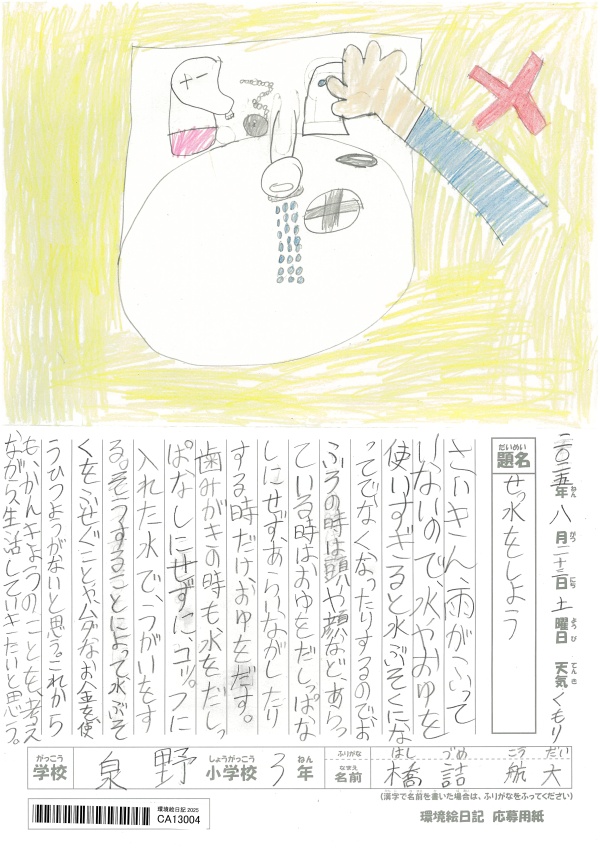 二〇二五年八月二十三日土曜日 天気くもり
ねん がつ にち ようび てんき
だいめい
題名
せっ水をしよう
さいきん、雨がふって
いないので、水やおゆを
使いすぎると水ぶそくにな
ってでなくなったりするのでお
ふろの時は頭や顔など、あらっ
ている時はおゆをだしっぱな
しにせず、あらいながしたり
する時だけ、おゆをだす。
歯みがきの時も水をだしっ
ぱなしにせずに、コップに
入れた水で、うがいをす
る。そうすることによって、水ぶそ
くをふせぐことや、ムダなお金を使
うひつようがないと思う。これから
も、かんきょうのことを、考え
ながら生活していきたいと思う。
がっこう しょうがっこう ねん
学校 泉野 小学校 3年
ふりがな はし づめ こう だい
なまえ
名前 橋詰 航大
(漢字で名前を書いた場合は、ふりがなをふってください)
環境絵日記 応募用紙
環境絵日記2025
CA13004